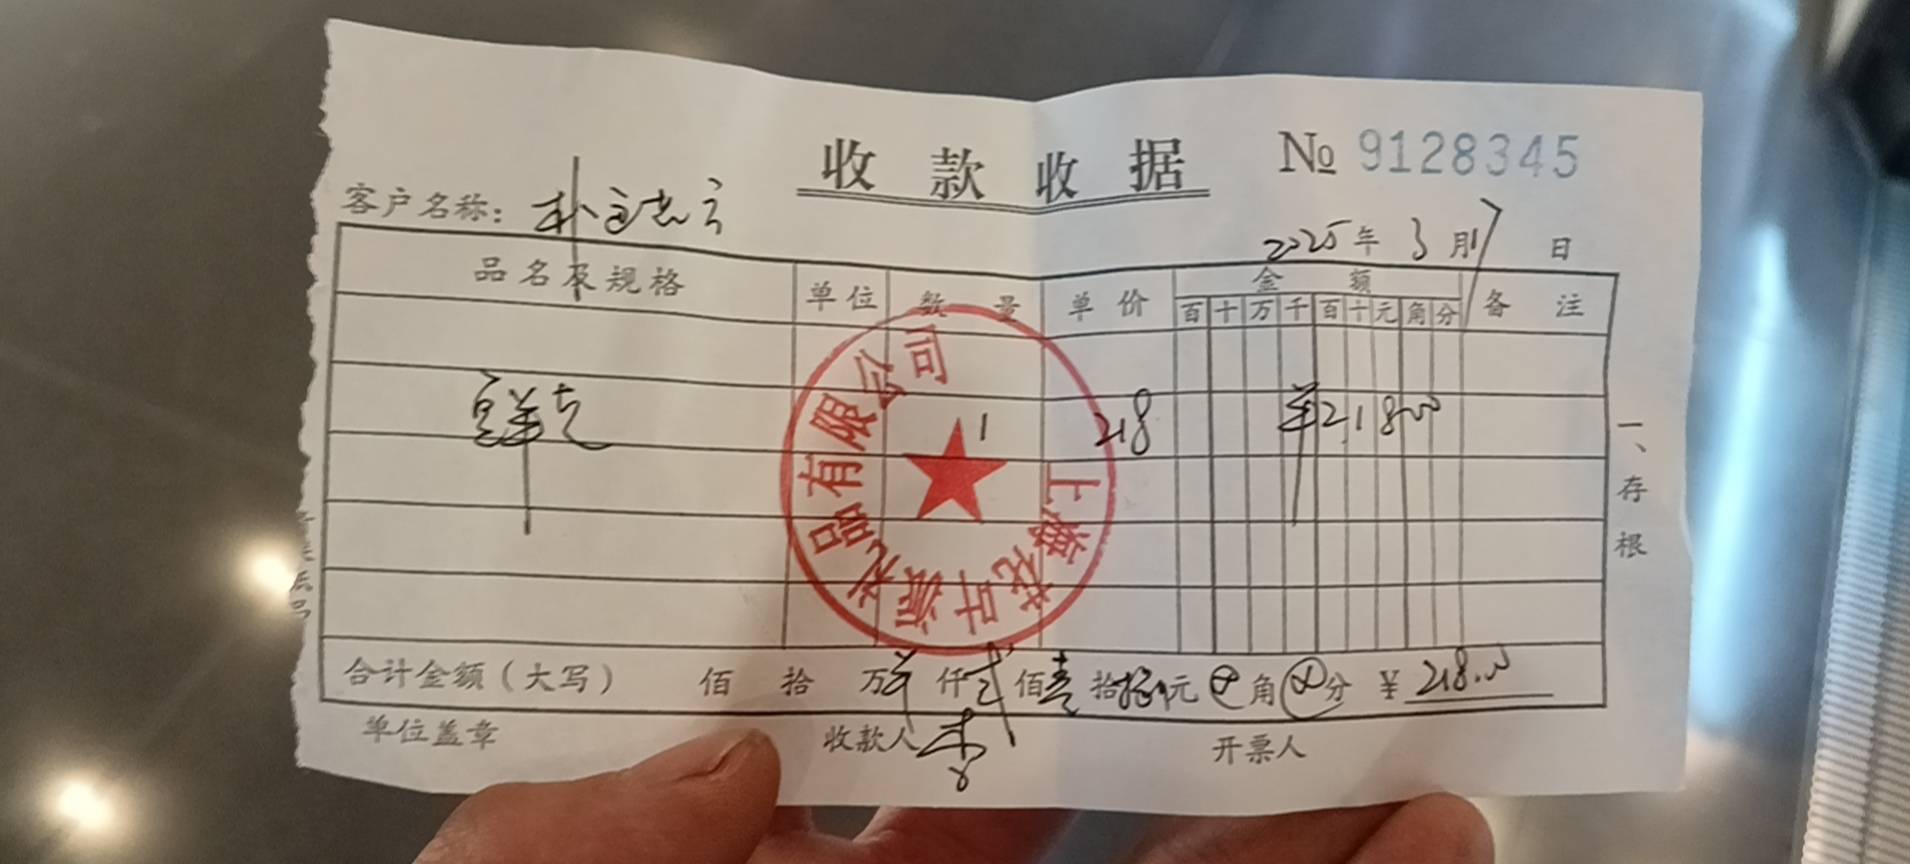 收款收据 № 9128345
客户名称：
2025年3月17日
品名及规格 单位 数量 单价 金额 备注
百 十 万 千 百 十 元 角 分
1 218 ¥21800
一、存根
上海花卉源礼品有限公司
合计金额（大写） 佰 拾 万 仟贰佰壹拾捌元 角 分 ¥ 218.00
单位盖章 收款人 开票人